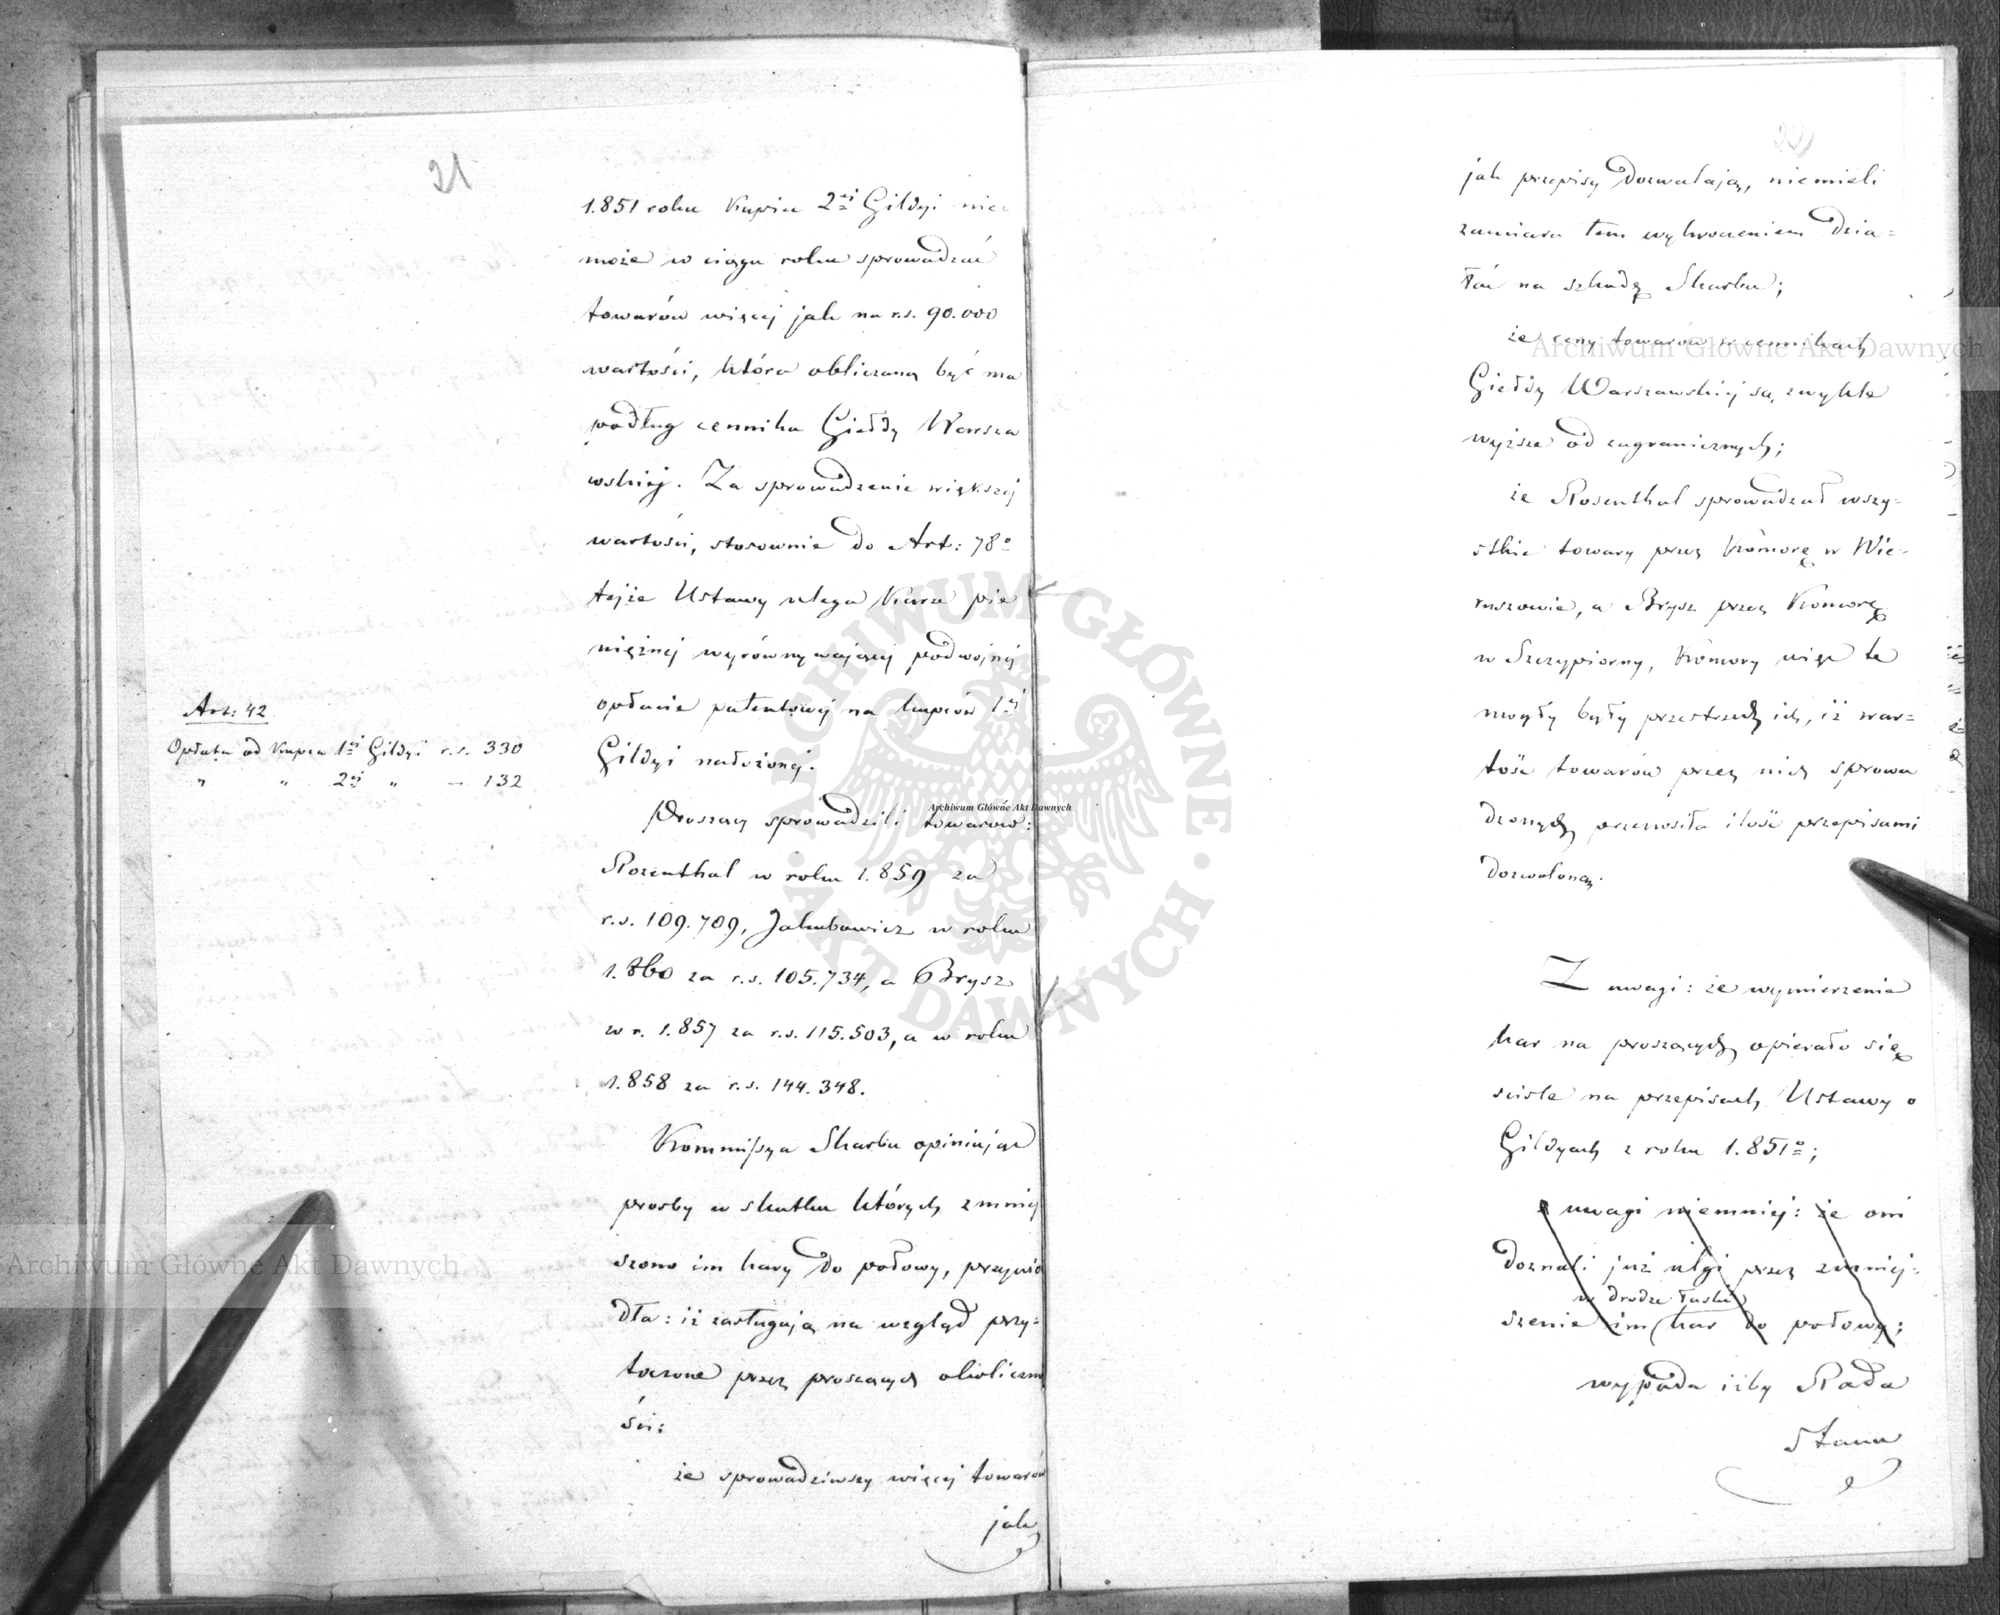 21
1.851 roku Kupiec 2ej Gildyi nie
może w ciągu roku sprowadzać
towarów więcej jak na r.s. 90.000
wartości, która obliczaną być ma
podług cennika Giełdy Warsza
wskiej. Za sprowadzenie większej
wartości, stosownie do Art: 78o
tejże Ustawy ulega Karze pie
niężnej wyrównywającej podwojnej
opłacie patentowej na kupców 1ej
Gildyi nałożonej.
Art: 42
Opłata od Kupca 1ej Gildyi r.s. 330
" " 2ej " — 132
Proszący sprowadzili towarow:
Rozenthal w roku 1.859 za
r.s. 109.709, Jakubowicz w roku
1.860 za r.s. 105.734, a Brysz
w r. 1.857 za r.s. 115.503, a w roku
1.858 za r.s. 144.348.
Kommissya Skarbu opiniując
prosby w skutku których zmniej
szono im kary do połowy, przywio
dła: iż zasługują na wzgląd przy=
toczone przez proszących okoliczno
ści:
że sprowadziwszy więcej towarów
jak
22
jak przepisy dozwalają, niemieli
zamiaru tem wykroczeniem dzia=
łać na szkodę Skarbu;
że ceny towarów w cennikach
Giełdy Warszawskiej są zwykle
wyższe od zagranicznych;
że Rosenthal sprowadzał wszy=
stkie towary przez Komorę w Wie=
ruszowie, a Brysz przez Komorę
w Szczypiorny, Komory więc te
mogły były przestrzedz ich, iż war=
tość towarów przez nich sprowa
dzonych przenosiła ilość przepisami
dozwoloną.
Z uwagi: że wymierzenie
kar na proszących opierało się
scisle na przepisach Ustawy o
Gildyach z roku 1.851o;
z uwagi niemniej: że oni
doznali już ulgi przez zmniej=
w drodze łaski
szenie im kar do połowy;
wypada iżby Rada
Stanu
Archiwum Główne Akt Dawnych
Archiwum Główne Akt Dawnych
Archiwum Główne Akt Dawnych
ARCHIWUM GŁÓWNE · AKT DAWNYCH ·